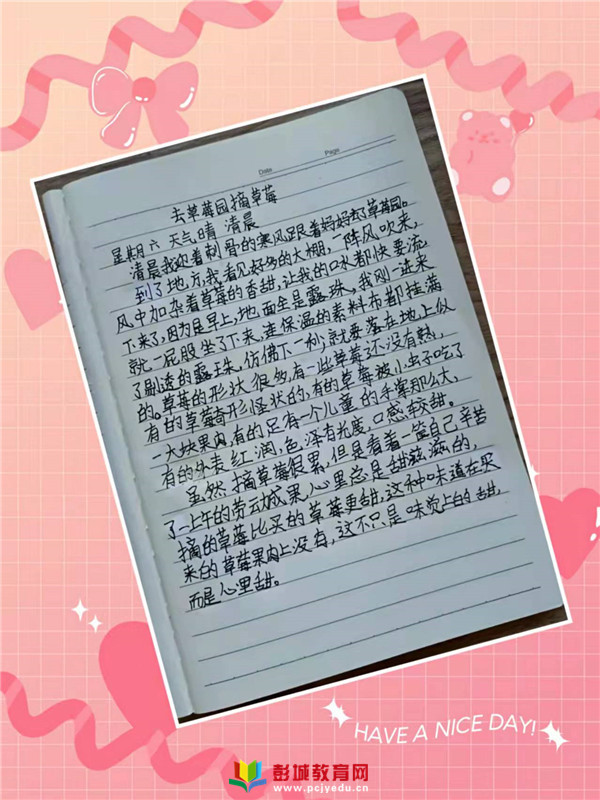 Date
Page
去草莓园摘草莓
星期六 天气晴 清晨
清晨我迎着刺骨的寒风跟着妈妈去了草莓园。
到了地方,我看见好多的大棚,一阵风吹来,
风中加杂着草莓的香甜,让我的口水都快要流
下来了,因为是早上,地面全是露珠,我刚一进来
就一屁股坐了下来,连保温的素料布都挂满
了剔透的露珠,仿佛下一秒就要落在地上似
的。草莓的形状很多,有一些草莓还没有熟,
有的草莓奇形怪状的,有的草莓被小虫子吃了
一大块果肉,有的足有一个儿童的手掌那么大,
有的外表红润,色泽有光度,口感较甜。
虽然摘草莓很累,但是看着一篮自己辛苦
了一上午的劳动成果,心里总是甜滋滋的,
摘的草莓比买的草莓更甜,这种味道在买
来的草莓果肉上没有,这不只是味觉上的甜,
而是心里甜。
HAVE A NICE DAY!
彭城教育网
www.pcjyedu.cn